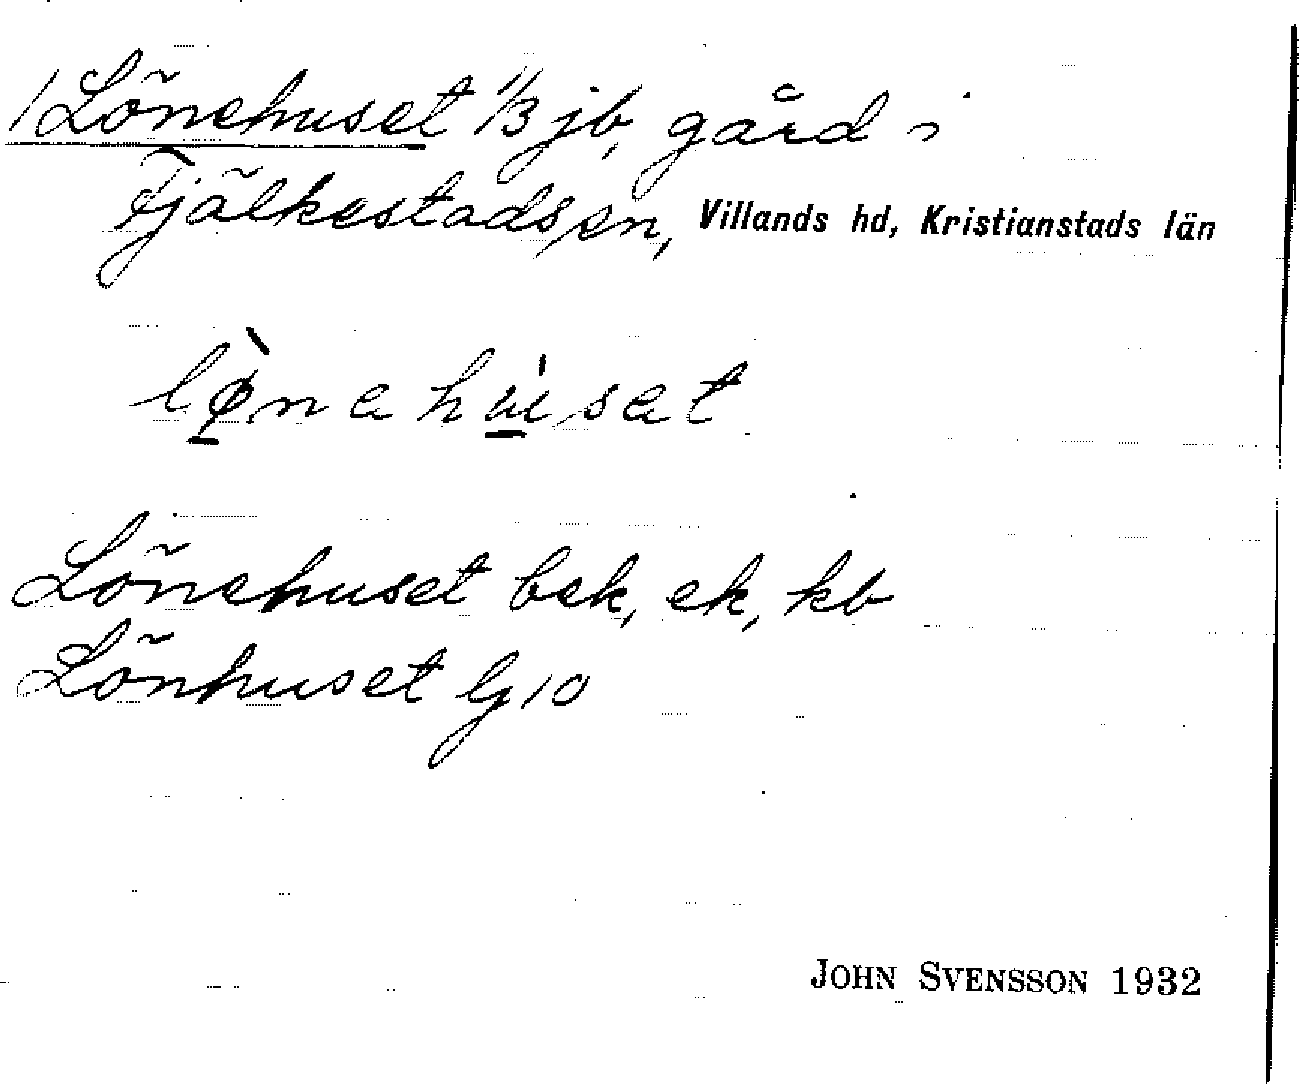 /Lönehuset 1/3 jb, gård i
Fjälkestads sn, Villands hd, Kristianstads län
lø̀nahúsat
Lönehuset bek, ek, kb
Lönhuset Gj 10
JOHN SVENSSON 1932